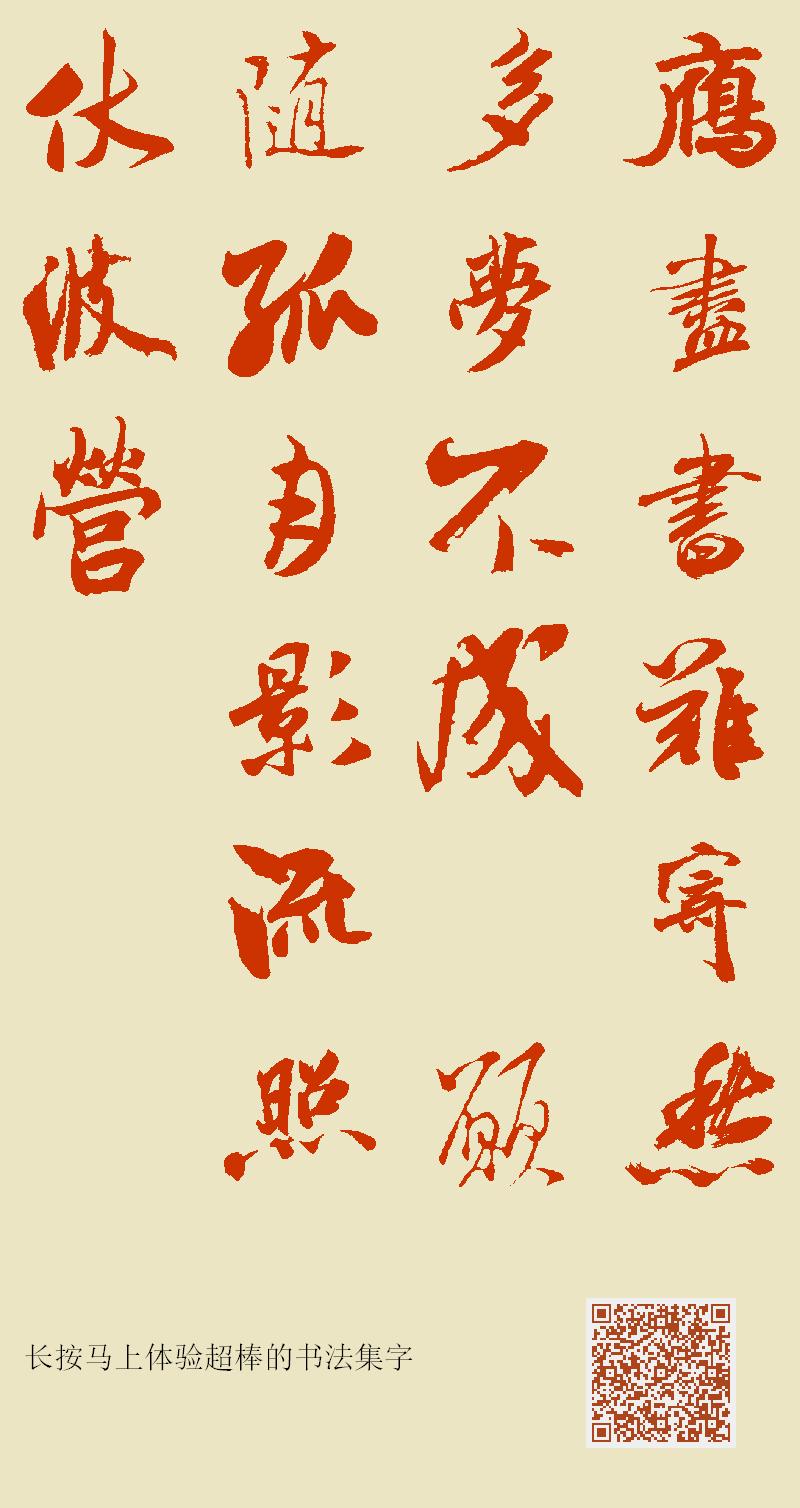 鴈盡書難寄愁
多夢不成 願
随孤月影流照
伏波營
长按马上体验超棒的书法集字